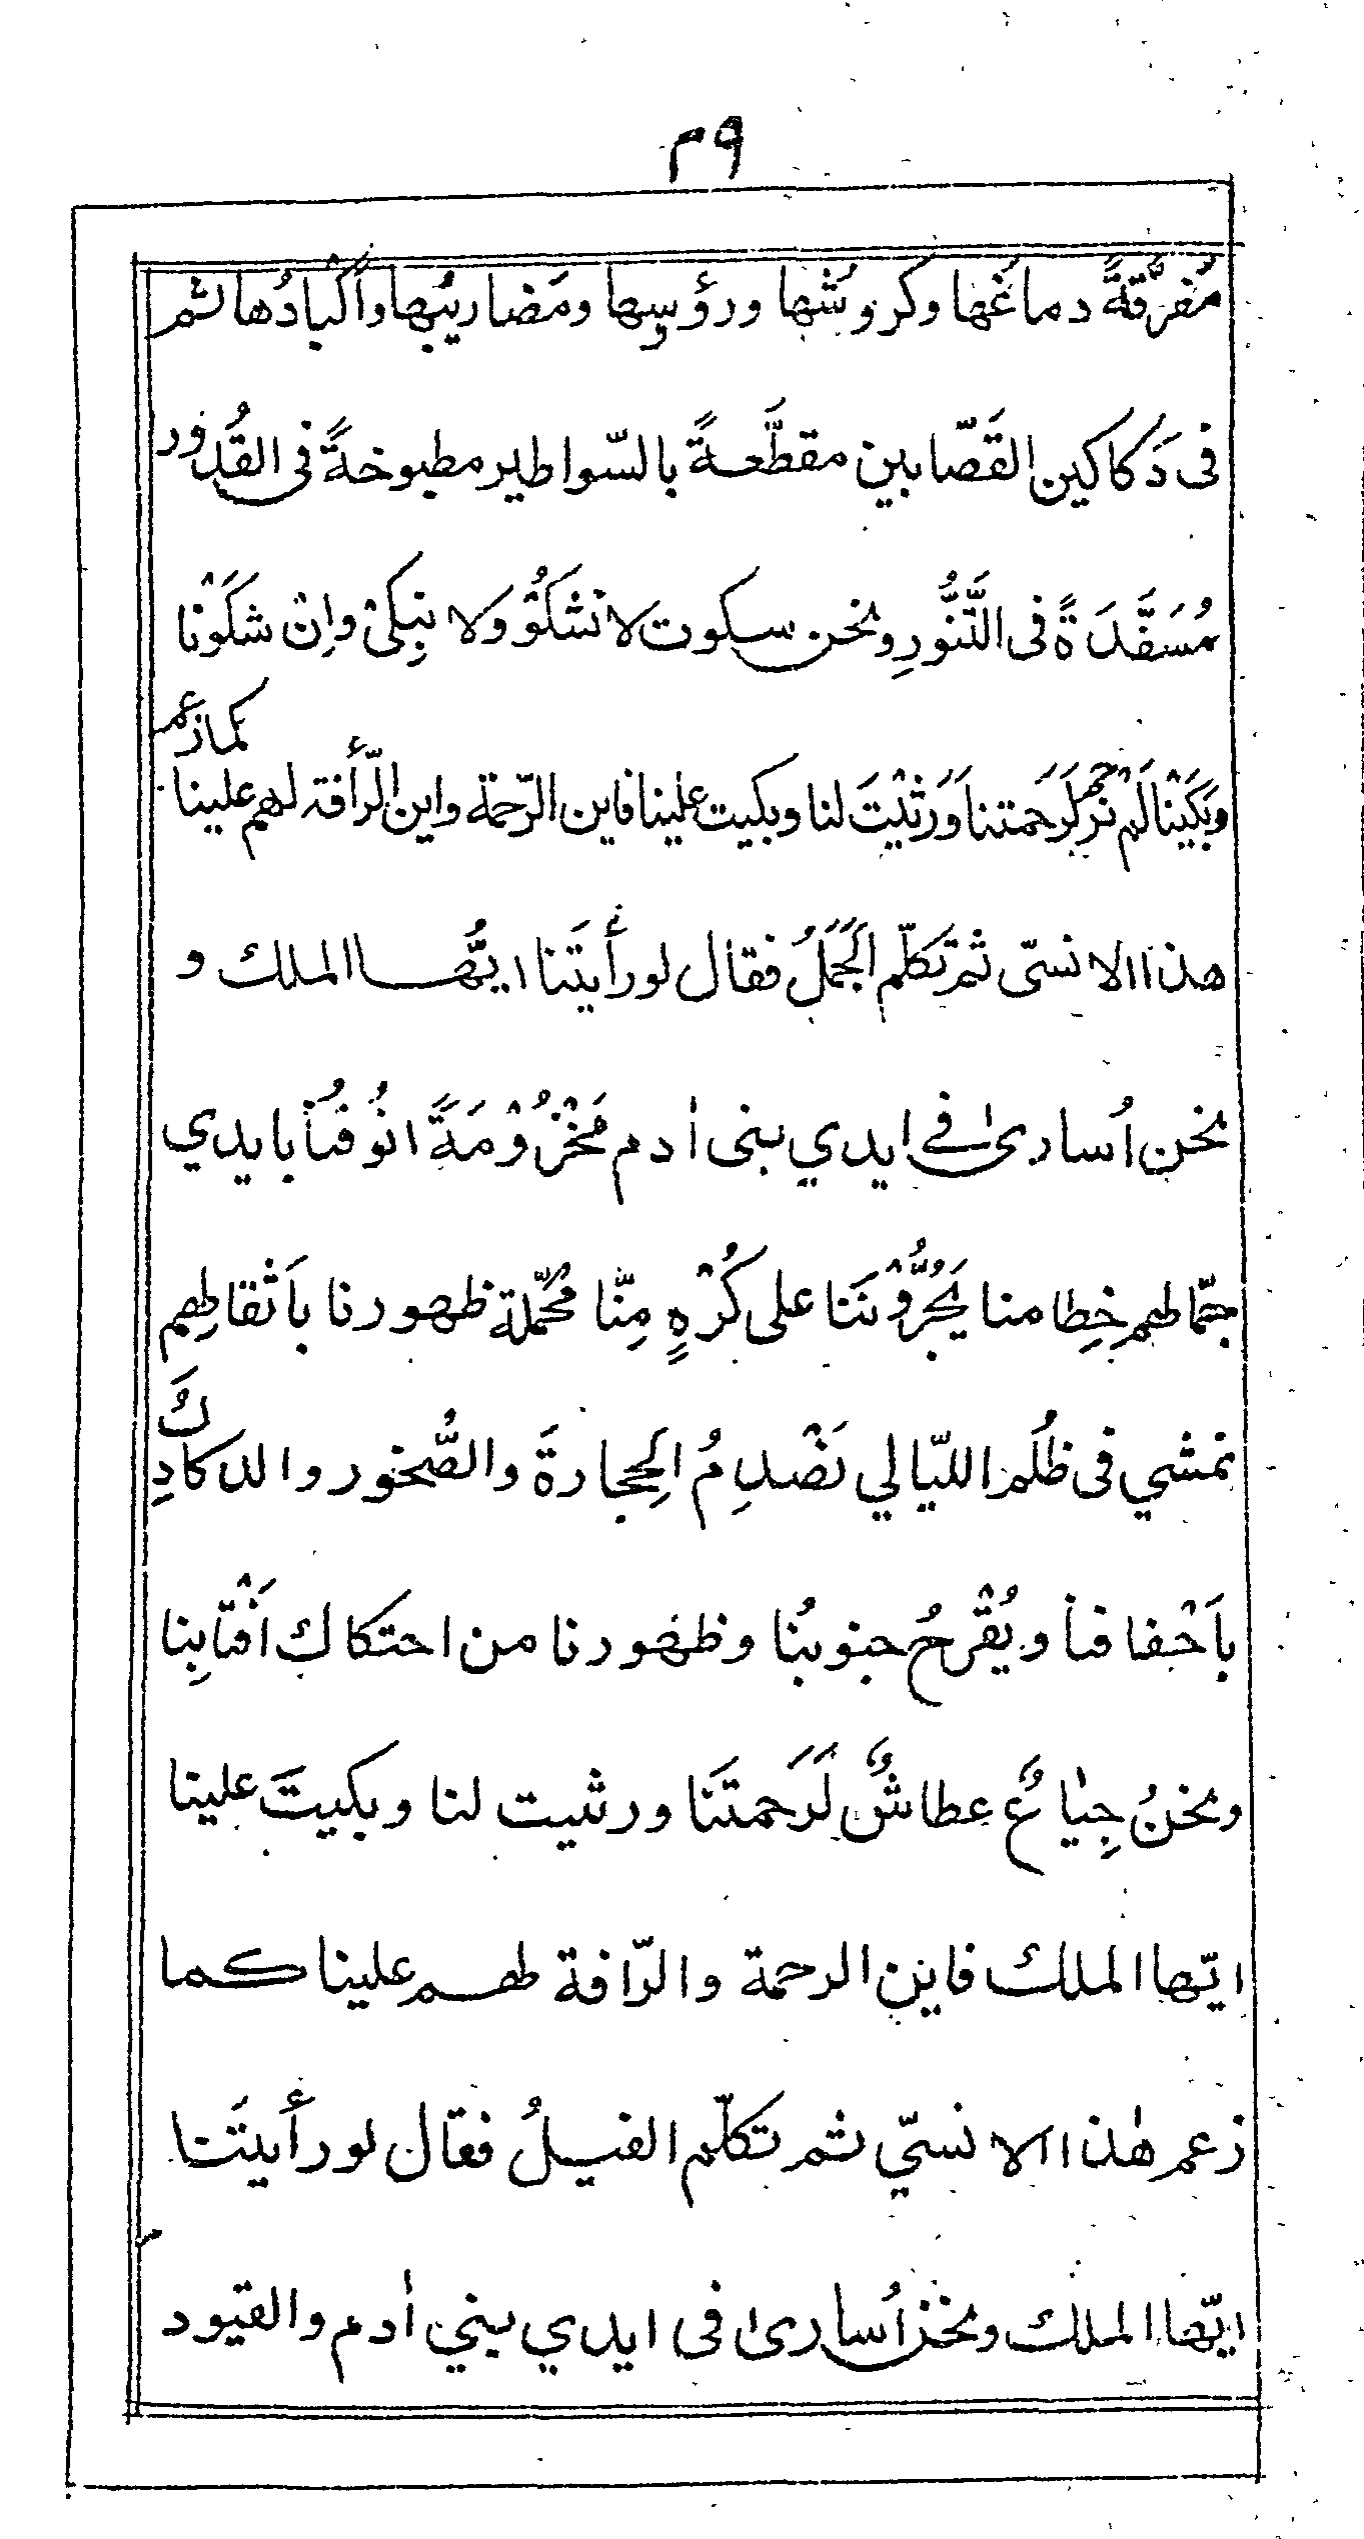 ٣٩
مُفرَّقةً دماغُها وكروشُها ورؤسِها ومَضاريبُها واَكْبادُها ثم
فى دَكاكين القَصّابين مقطَّعةً بالسّواطير مطبوخةً فى القُدور
مُسَفَّدَةً فى التَّنُّورِ ونحن سكوت لا نَشْكُوْ ولا نبِكىْ وانْ شكَوْنا
وبَكَيْنا لَمْ نُرْحَم لَرَحَمتنا وَرَثَيْتَ لنا وبكيت علينا فاين الرّحمة واين الرّأفة لهم علينا
كما زعم
هذا الانسىّ ثم تكلّم الجَمَلُ فقال لو رأيتَنا ايُّها الملك و
نحن اُسارىٰ فے ايدي بنى اٰدم مَخْزُوْمَةً انُوفُنا بايدي
جمّالهم خِطامنا يَجُرُّوْنَنا على كُرْهٍ مِنّا مُحمّلة ظهورنا باَثقالهِم
نمشي فى ظُلَم اللّيالي نَصْدِمُ الحِجارةَ والصُّخور والدكادِكَ
باَخْفافنا ويُقْرحُ جنوبُنا وظهورنا من احتكاك اَقْتابِنا
ونحنُ جِياعٌ عطاشٌ لَرَحمتَنا ورثيت لنا وبكيتَ علينا
ايّها الملك فاين الرحمة والرّافة لهم علينا كما
زعم هٰذا الانسيّ ثم تكلّم الفيلُ فقال لو رأيتَنا
ايّها الملك ونحن اُسارىٰ فى ايدي بني اٰدم والقيود